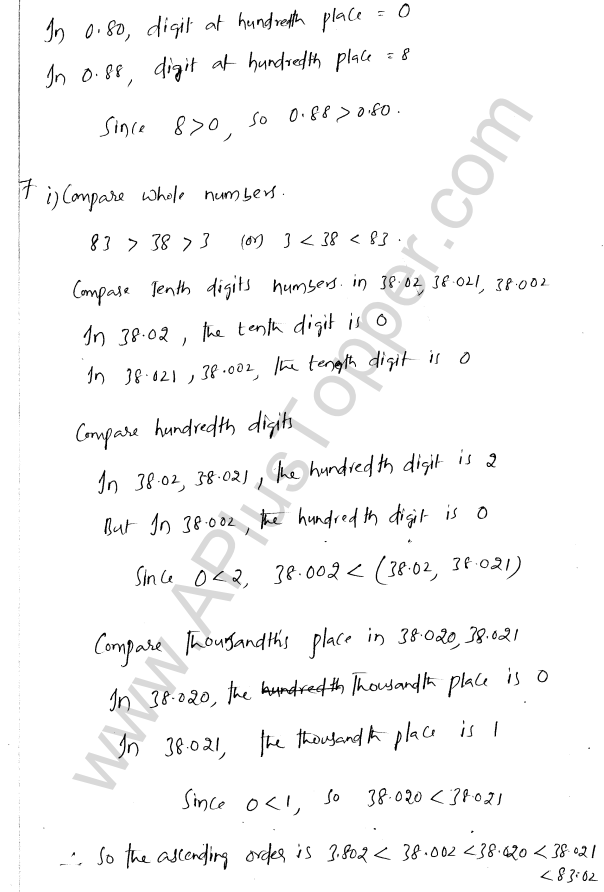 In 0.80, digit at hundredth place = 0
In 0.88, digit at hundredth place = 8
Since 8>0, so 0.88 > 0.80.
7 i) Compare whole numbers.
83 > 38 > 3 (or) 3 < 38 < 83.
Compare Tenth digits numbers in 38.02, 38.021, 38.002
In 38.02, the tenth digit is 0
In 38.021, 38.002, the tenth digit is 0
Compare hundredth digits
In 38.02, 38.021, the hundredth digit is 2
But In 38.002, the hundredth digit is 0
Since 0<2, 38.002 < (38.02, 38.021)
Compare Thousandths place in 38.020, 38.021
In 38.020, the hundredth Thousandth place is 0
In 38.021, the thousandth place is 1
Since 0<1, so 38.020 < 38.021
∴ So the ascending order is 3.802 < 38.002 < 38.020 < 38.021
< 83.02
www.APlusTopper.com